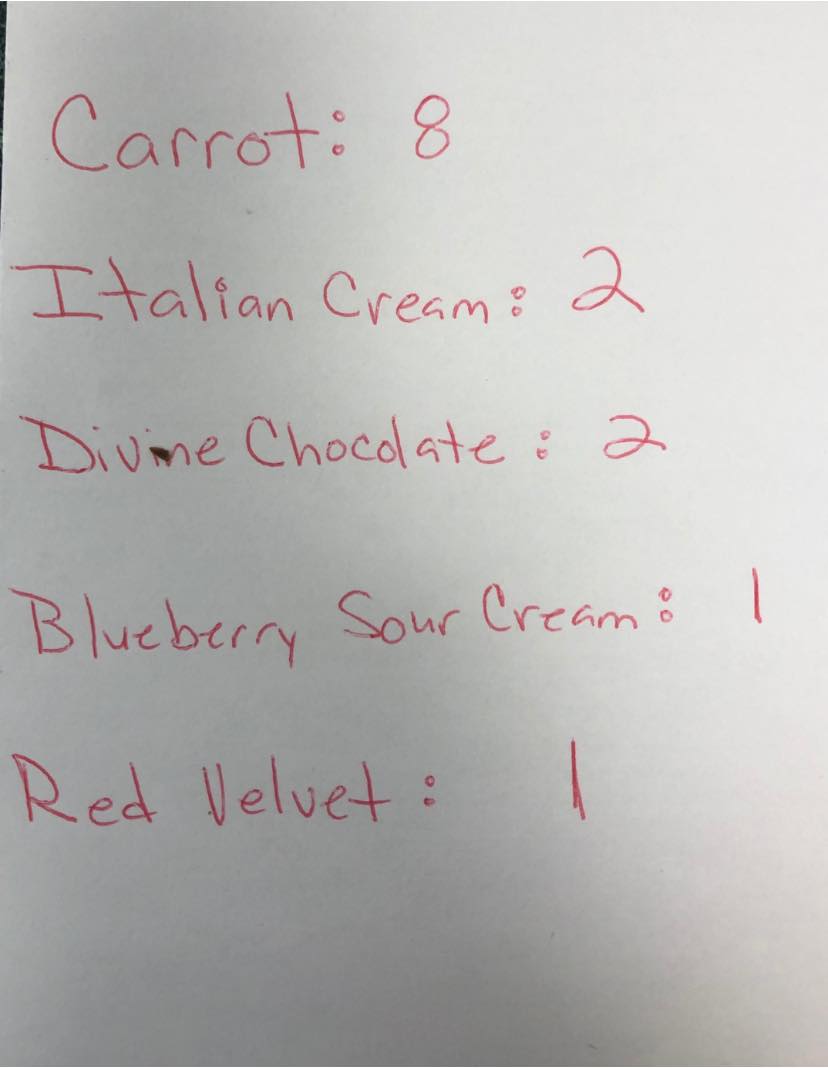 Carrot: 8
Italian Cream: 2
Divine Chocolate: 2
Blueberry Sour Cream: 1
Red Velvet: 1